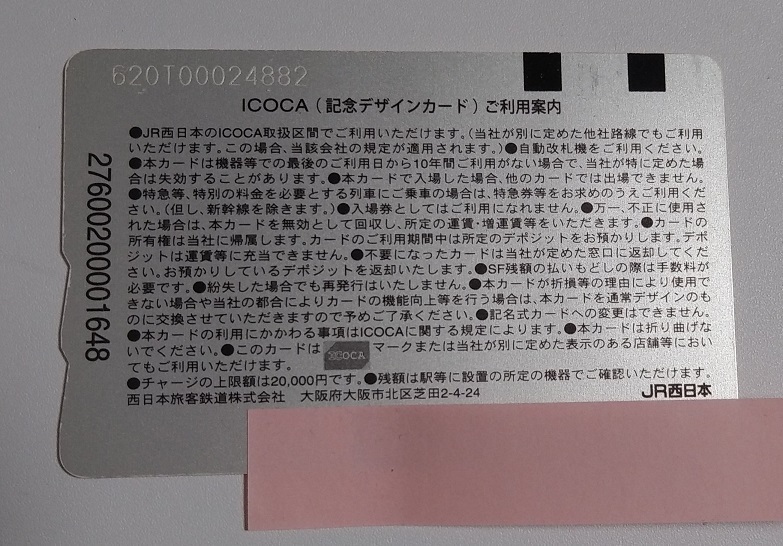 620T00024882
ICOCA(記念デザインカード)ご利用案内
●JR西日本のICOCA取扱区間でご利用いただけます。(当社が別に定めた他社路線でもご利用
いただけます。この場合、当該会社の規定が適用されます。)●自動改札機をご利用ください。
●本カードは機器等での最後のご利用日から10年間ご利用がない場合で、当社が特に定めた場
合は失効することがあります。●本カードで入場した場合、他のカードでは出場できません。
●特急等、特別の料金を必要とする列車にご乗車の場合は、特急券等をお求めのうえご利用くだ
さい。(但し、新幹線を除きます。)●入場券としてはご利用になれません。●万一、不正に使用さ
れた場合は、本カードを無効として回収し、所定の運賃・増運賃等をいただきます。●カードの
所有権は当社に帰属します。カードのご利用期間中は所定のデポジットをお預かりします。デポ
ジットは運賃等に充当できません。●不要になったカードは当社が定めた窓口に返却してくだ
さい。お預かりしているデポジットを返却いたします。●SF残額の払いもどしの際は手数料が
必要です。●紛失した場合でも再発行はいたしません。●本カードが折損等の理由により使用で
きない場合や当社の都合によりカードの機能向上等を行う場合は、本カードを通常デザインのも
のに交換させていただきますので予めご了承ください。●記名式カードへの変更はできません。
●本カードの利用にかかわる事項はICOCAに関する規定によります。●本カードは折り曲げな
いでください。●このカードは ICOCA マークまたは当社が別に定めた表示のある店舗等におい
てもご利用いただけます。
●チャージの上限額は20,000円です。●残額は駅等に設置の所定の機器でご確認いただけます。
西日本旅客鉄道株式会社 大阪府大阪市北区芝田2-4-24
JR西日本
2760020000001648